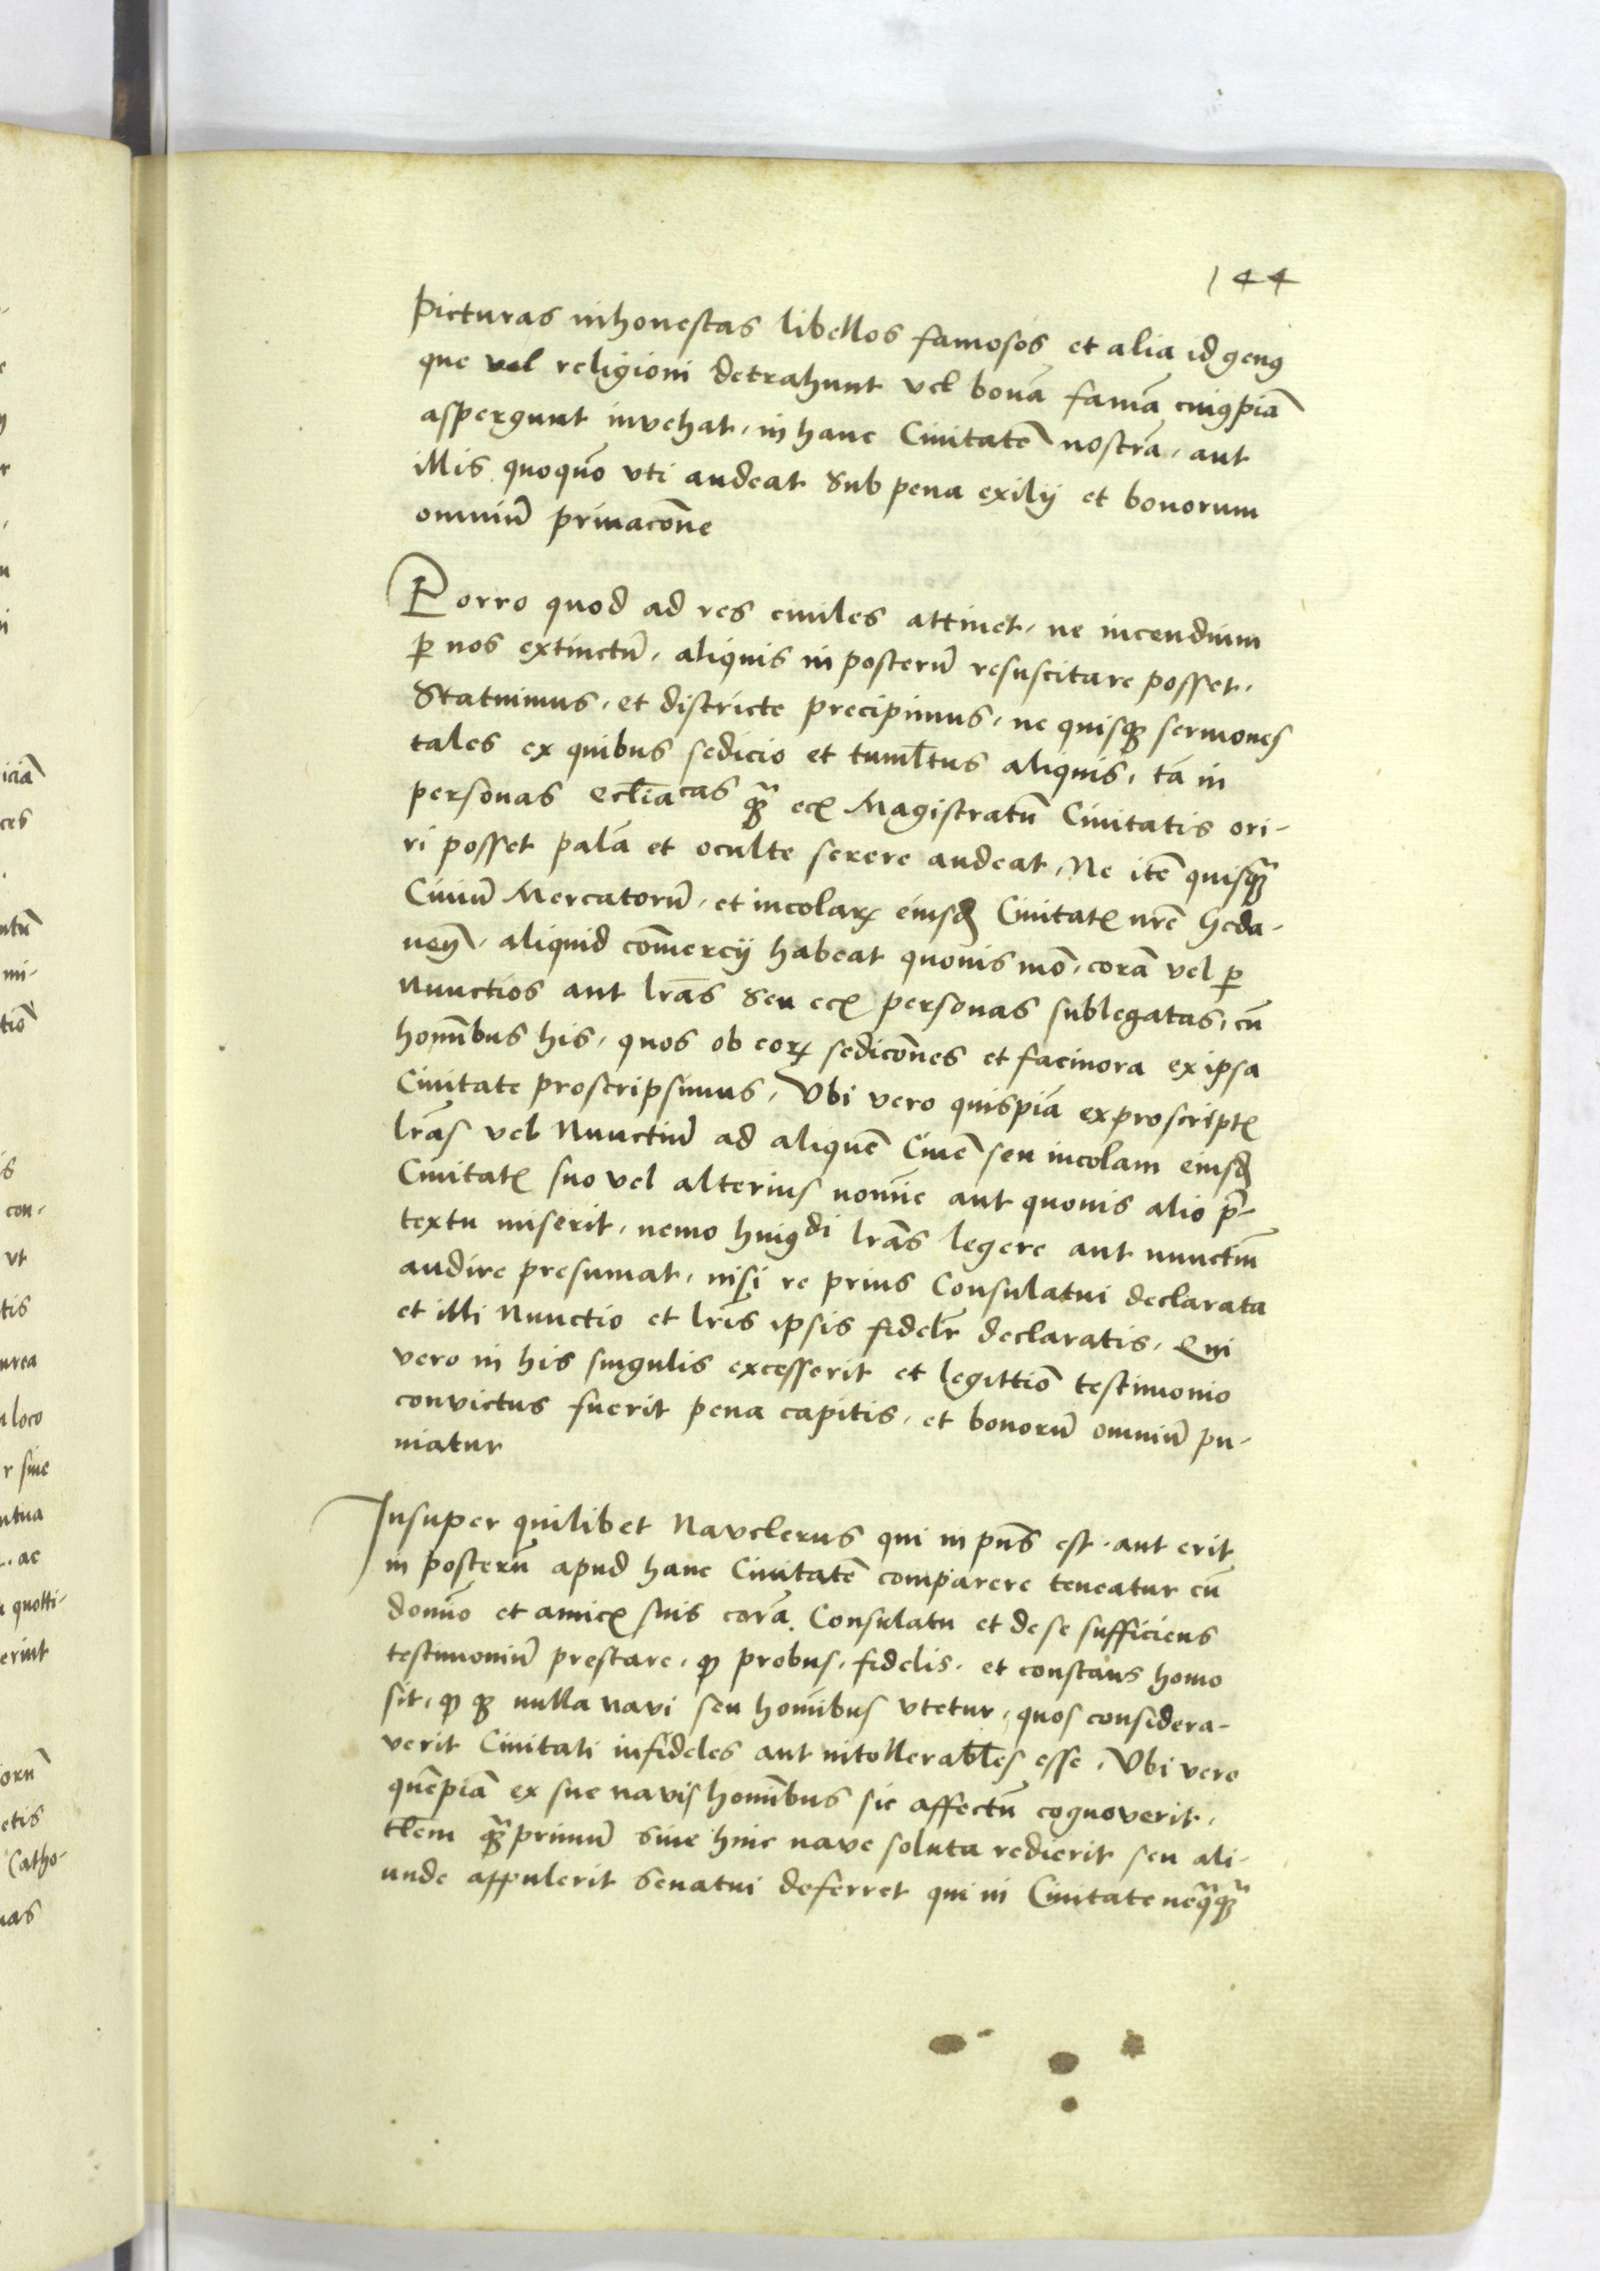 144
Picturas inhonestas libellos famosos et alia id genꝰ
que vel religioni detrahunt vel bonā famā cuiꝰpiā
aspergunt invehat, in hanc Civitatē nostrā, aut
illis quoquō vti audeat Sub pena exilij et bonorum
omniū privacōne
Porro quod ad res ciuiles attinet, ne incendium
ꝑ nos extinctū, aliquis in posterū resuscitare posset,
Statuimus, et districte precipimus, ne quisꝙ sermones
tales ex quibus sedicio et tumƚtus aliquis, tā in
personas eccƚiacas ꝙ̄ ecꝫ Magistratū Civitatis ori-
ri posset palā et oculte serere audeat, Ne itē quisꝙ̄
Civiū Mercatorū, et incolaꝝ eiusd Civitatꝫ nrē Geda-
neñ, aliquid cōmercij habeat quovis mō, corā vel ꝑ
Nunctios aut lrās Seu ecꝫ personas sublegatas, cū
homībus his, quos ob eoꝝ sedicōnes et facinora ex ipsa
Civitate proscripsimus, Vbi vero quispiā ex proscriptꝫ
lrās vel Nunctiū ad aliquē Civē seu incolam eiusd
Civitatꝫ suo vel alterius nomīe aut quovis alio p̄-
textu miserit, nemo huiꝰdi lrās legere aut nunctiū
audire presumat, nisi re prius Consulatui declarata
et illi Nunctio et lrīs ipsis fideƚr declaratis, Qui
vero in his singulis excesserit et legittīo testimonio
convictus fuerit pena capitis, et bonorū omniū pu-
niatur
Insuper quilibet Navclerus qui in pn̄s est, aut erit
in posterū apud hanc Civitatē comparere teneatur cū
domīo et amicꝫ suis corā Consulatu et de se sufficiens
testimoniū prestare, ꝙ probus, fidelis, et constans homo
sit, ꝙ ꝙ nulla navi seu homībus vtetur, quos considera-
verit Civitati infideles aut intollerabƚes esse, Vbi vero
quēpiā ex sue navis homībus sic affectū cognoverit,
tƚem ꝙ̄primū Sive hinc nave soluta redierit seu ali-
unde appulerit Senatui deferret qui in Civitate neq̄ꝙ̄